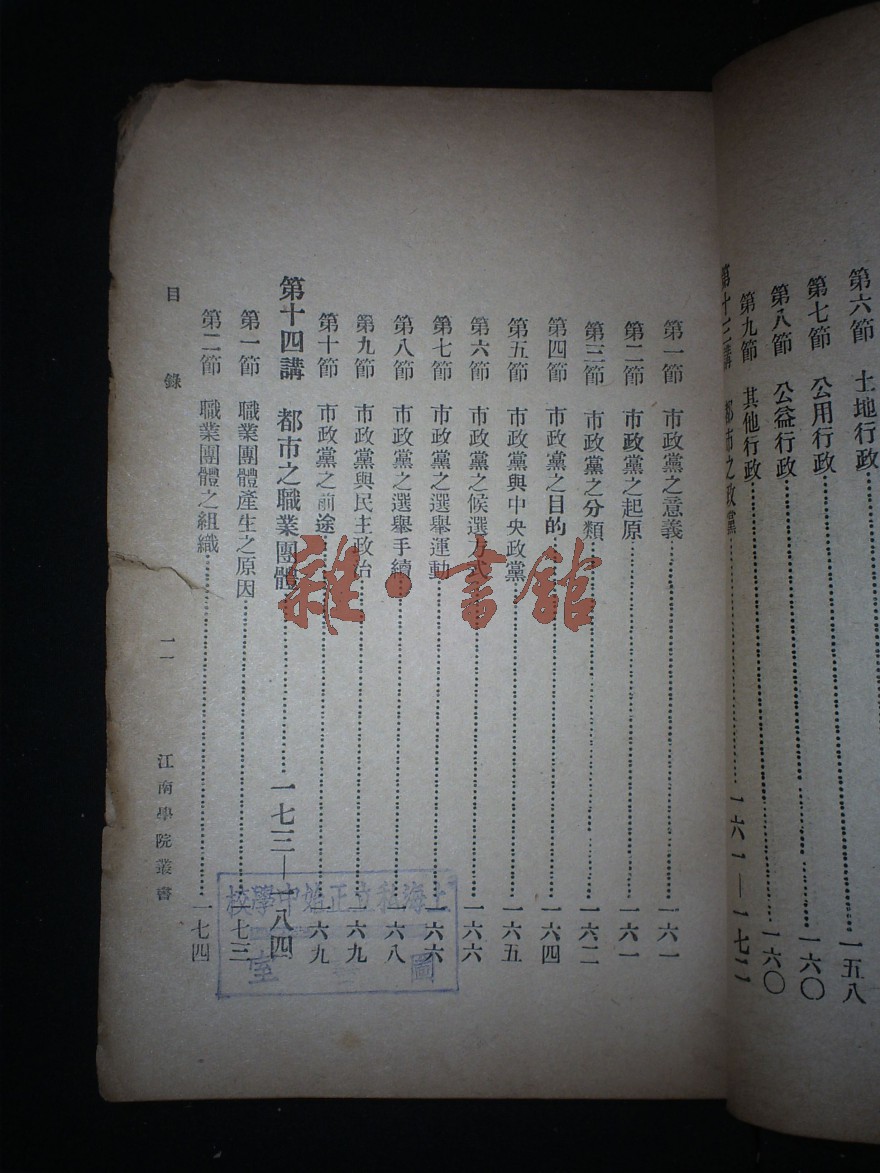 第六節　土地行政……一五八
第七節　公用行政……一六〇
第八節　公益行政……一六〇
第九節　其他行政
第十三講　都市之政黨……一六一—一七二
第一節　市政黨之意義……一六一
第二節　市政黨之起原……一六一
第三節　市政黨之分類……一六二
第四節　市政黨之目的……一六四
第五節　市政黨與中央政黨……一六五
第六節　市政黨之候選方式……一六六
第七節　市政黨之選舉運動……一六六
第八節　市政黨之選舉手續……一六八
第九節　市政黨與民主政治……一六九
第十節　市政黨之前途……一六九
第十四講　都市之職業團體……一七三—一八四
第一節　職業團體產生之原因……一七三
第二節　職業團體之組織……一七四
目錄　一一　江南學院叢書
上海私立正始中學校
圖　室
雜·書館